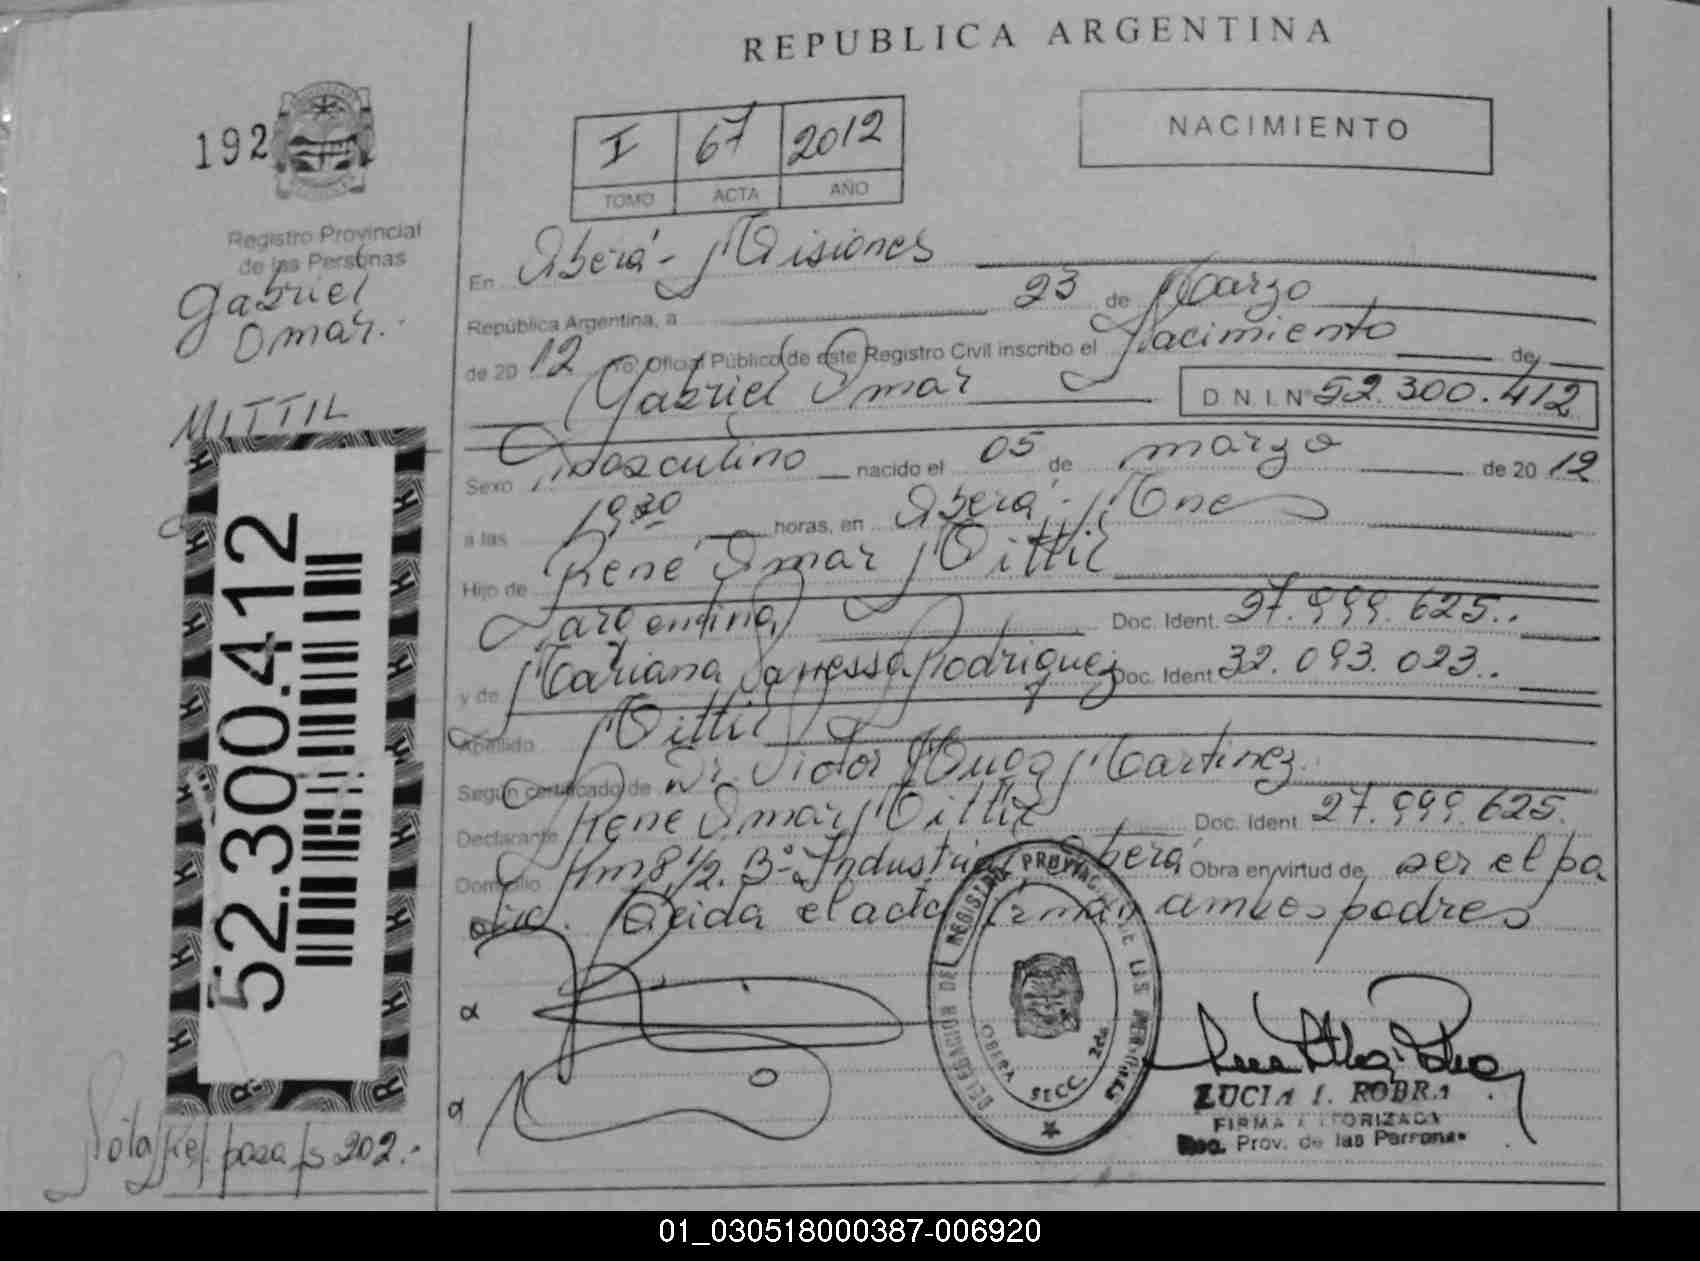 REPUBLICA ARGENTINA
192
I 67 2012
TOMO ACTA AÑO
NACIMIENTO
Registro Provincial
de las Personas
Gabriel
Omar.
MITTIL
52.300.412
En Oberá - Misiones
República Argentina, a 23 de Marzo
de 20 12 Yo, Oficial Público de este Registro Civil inscribo el Nacimiento de
Gabriel Omar D N I. Nº 52.300.412
Sexo Masculino nacido el 05 de marzo de 20 12
a las horas, en Oberá - Mnes
Hijo de René Omar Mittil
argentina Doc. Ident. 27.999.625..
y de Mariana Vanessa Rodriguez Doc. Ident 32.093.023..
Apellido Mittil
Según certificado de Dr. Victor Hugo Martinez.
Declarante René Omar Mittil Doc. Ident 27.999.625.
Domicilio Km 8 1/2. Bº Industrial Oberá Obra en virtud de ser el pa
dre. Leida el acta firman ambos padres
DELEGACION DE REGISTRO PROVINCIAL DE LAS PERSONAS
OBERA
SECC. 2da
LUCIA I. ROBRA
FIRMA AUTORIZADA
Reg. Prov. de las Personas
Nota Ref. pasa fs 202.-
01_030518000387-006920